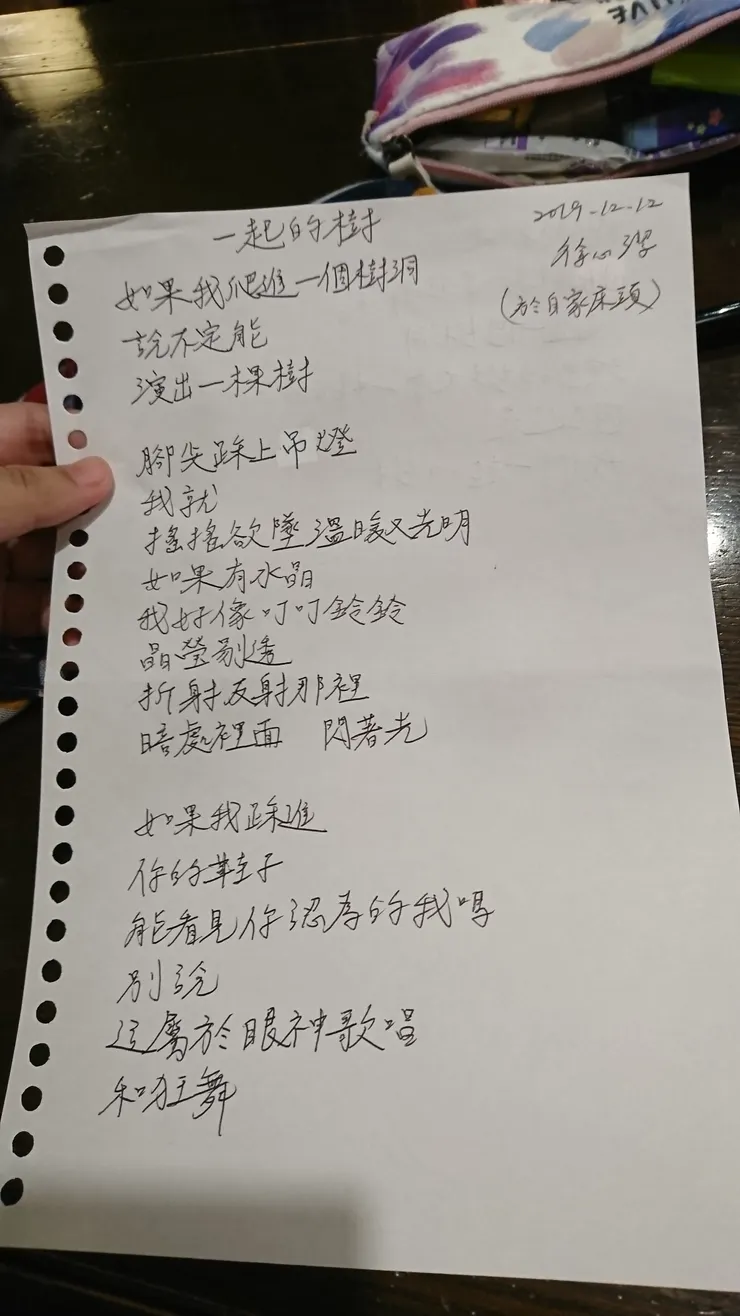 一起的樹
2019-12-12
徐心潔
(於自家床頭)
如果我爬進一個樹洞
說不定能
演出一棵樹
腳尖踩上吊燈
我就
搖搖欲墜溫暖又光明
如果有水晶
我好像叮叮鈴鈴
晶瑩剔透
折射反射那裡
暗處裡面 閃著光
如果我踩進
你的鞋子
能看見你認為的我嗎
別說
這屬於眼神歌唱
和狂舞